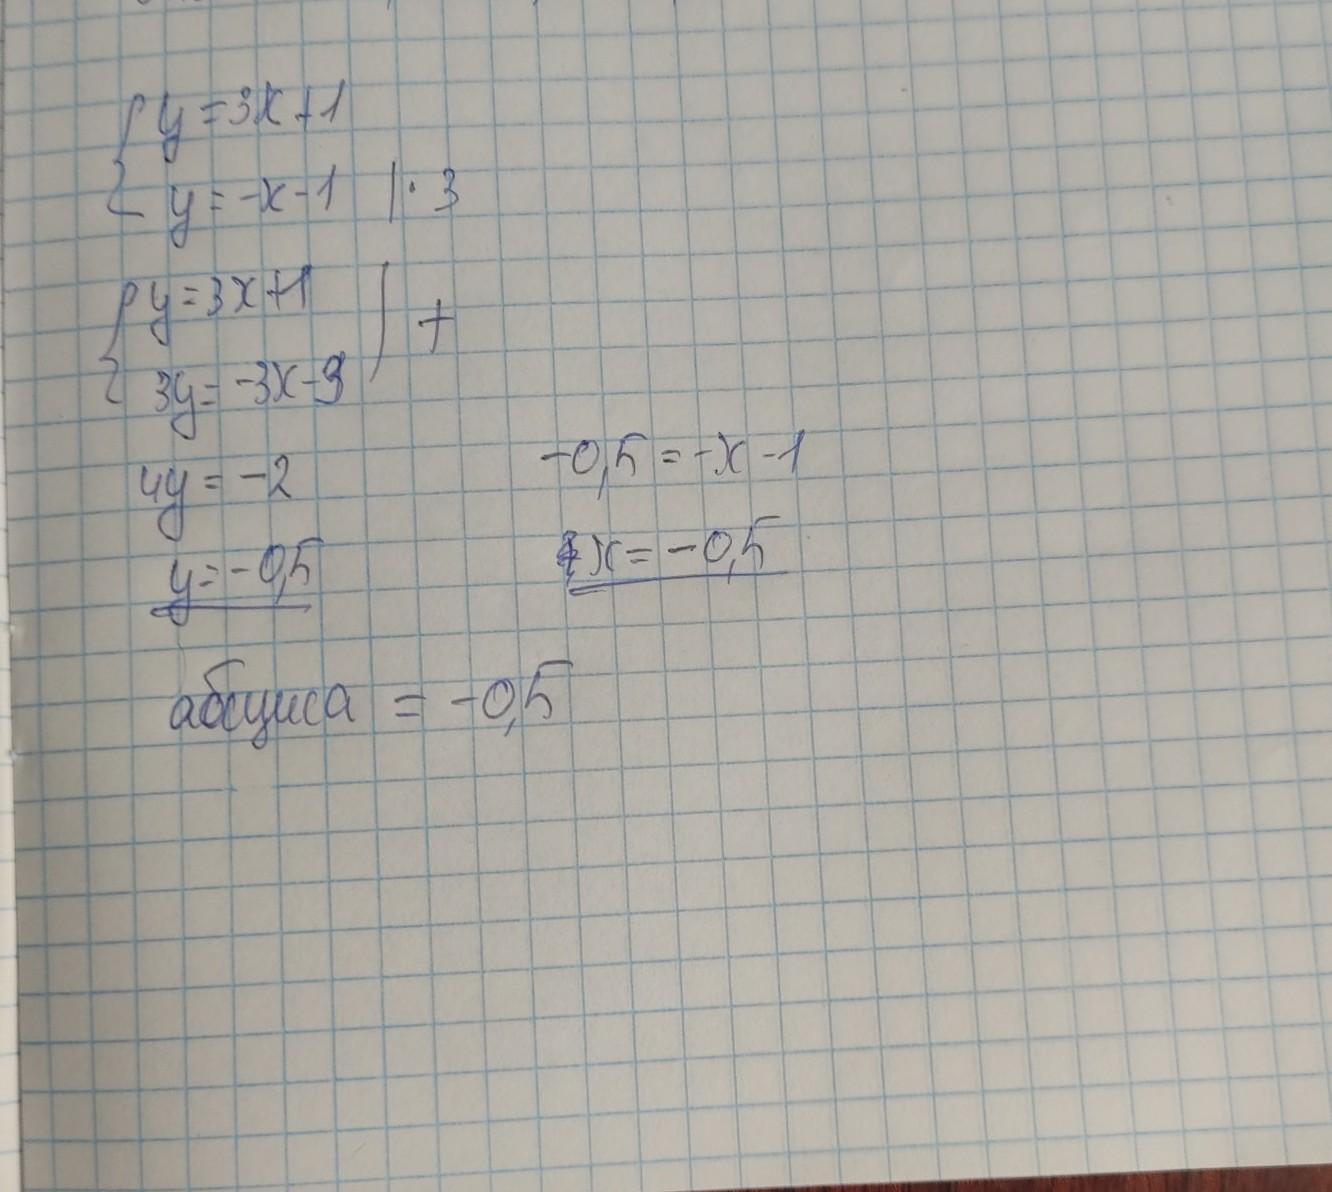 y = 3x + 1
y = -x - 1 | · 3
y = 3x + 1
+
3y = -3x - 3
4y = -2
y = -0,5
-0,5 = -x - 1
x = -0,5
абсциса = -0,5